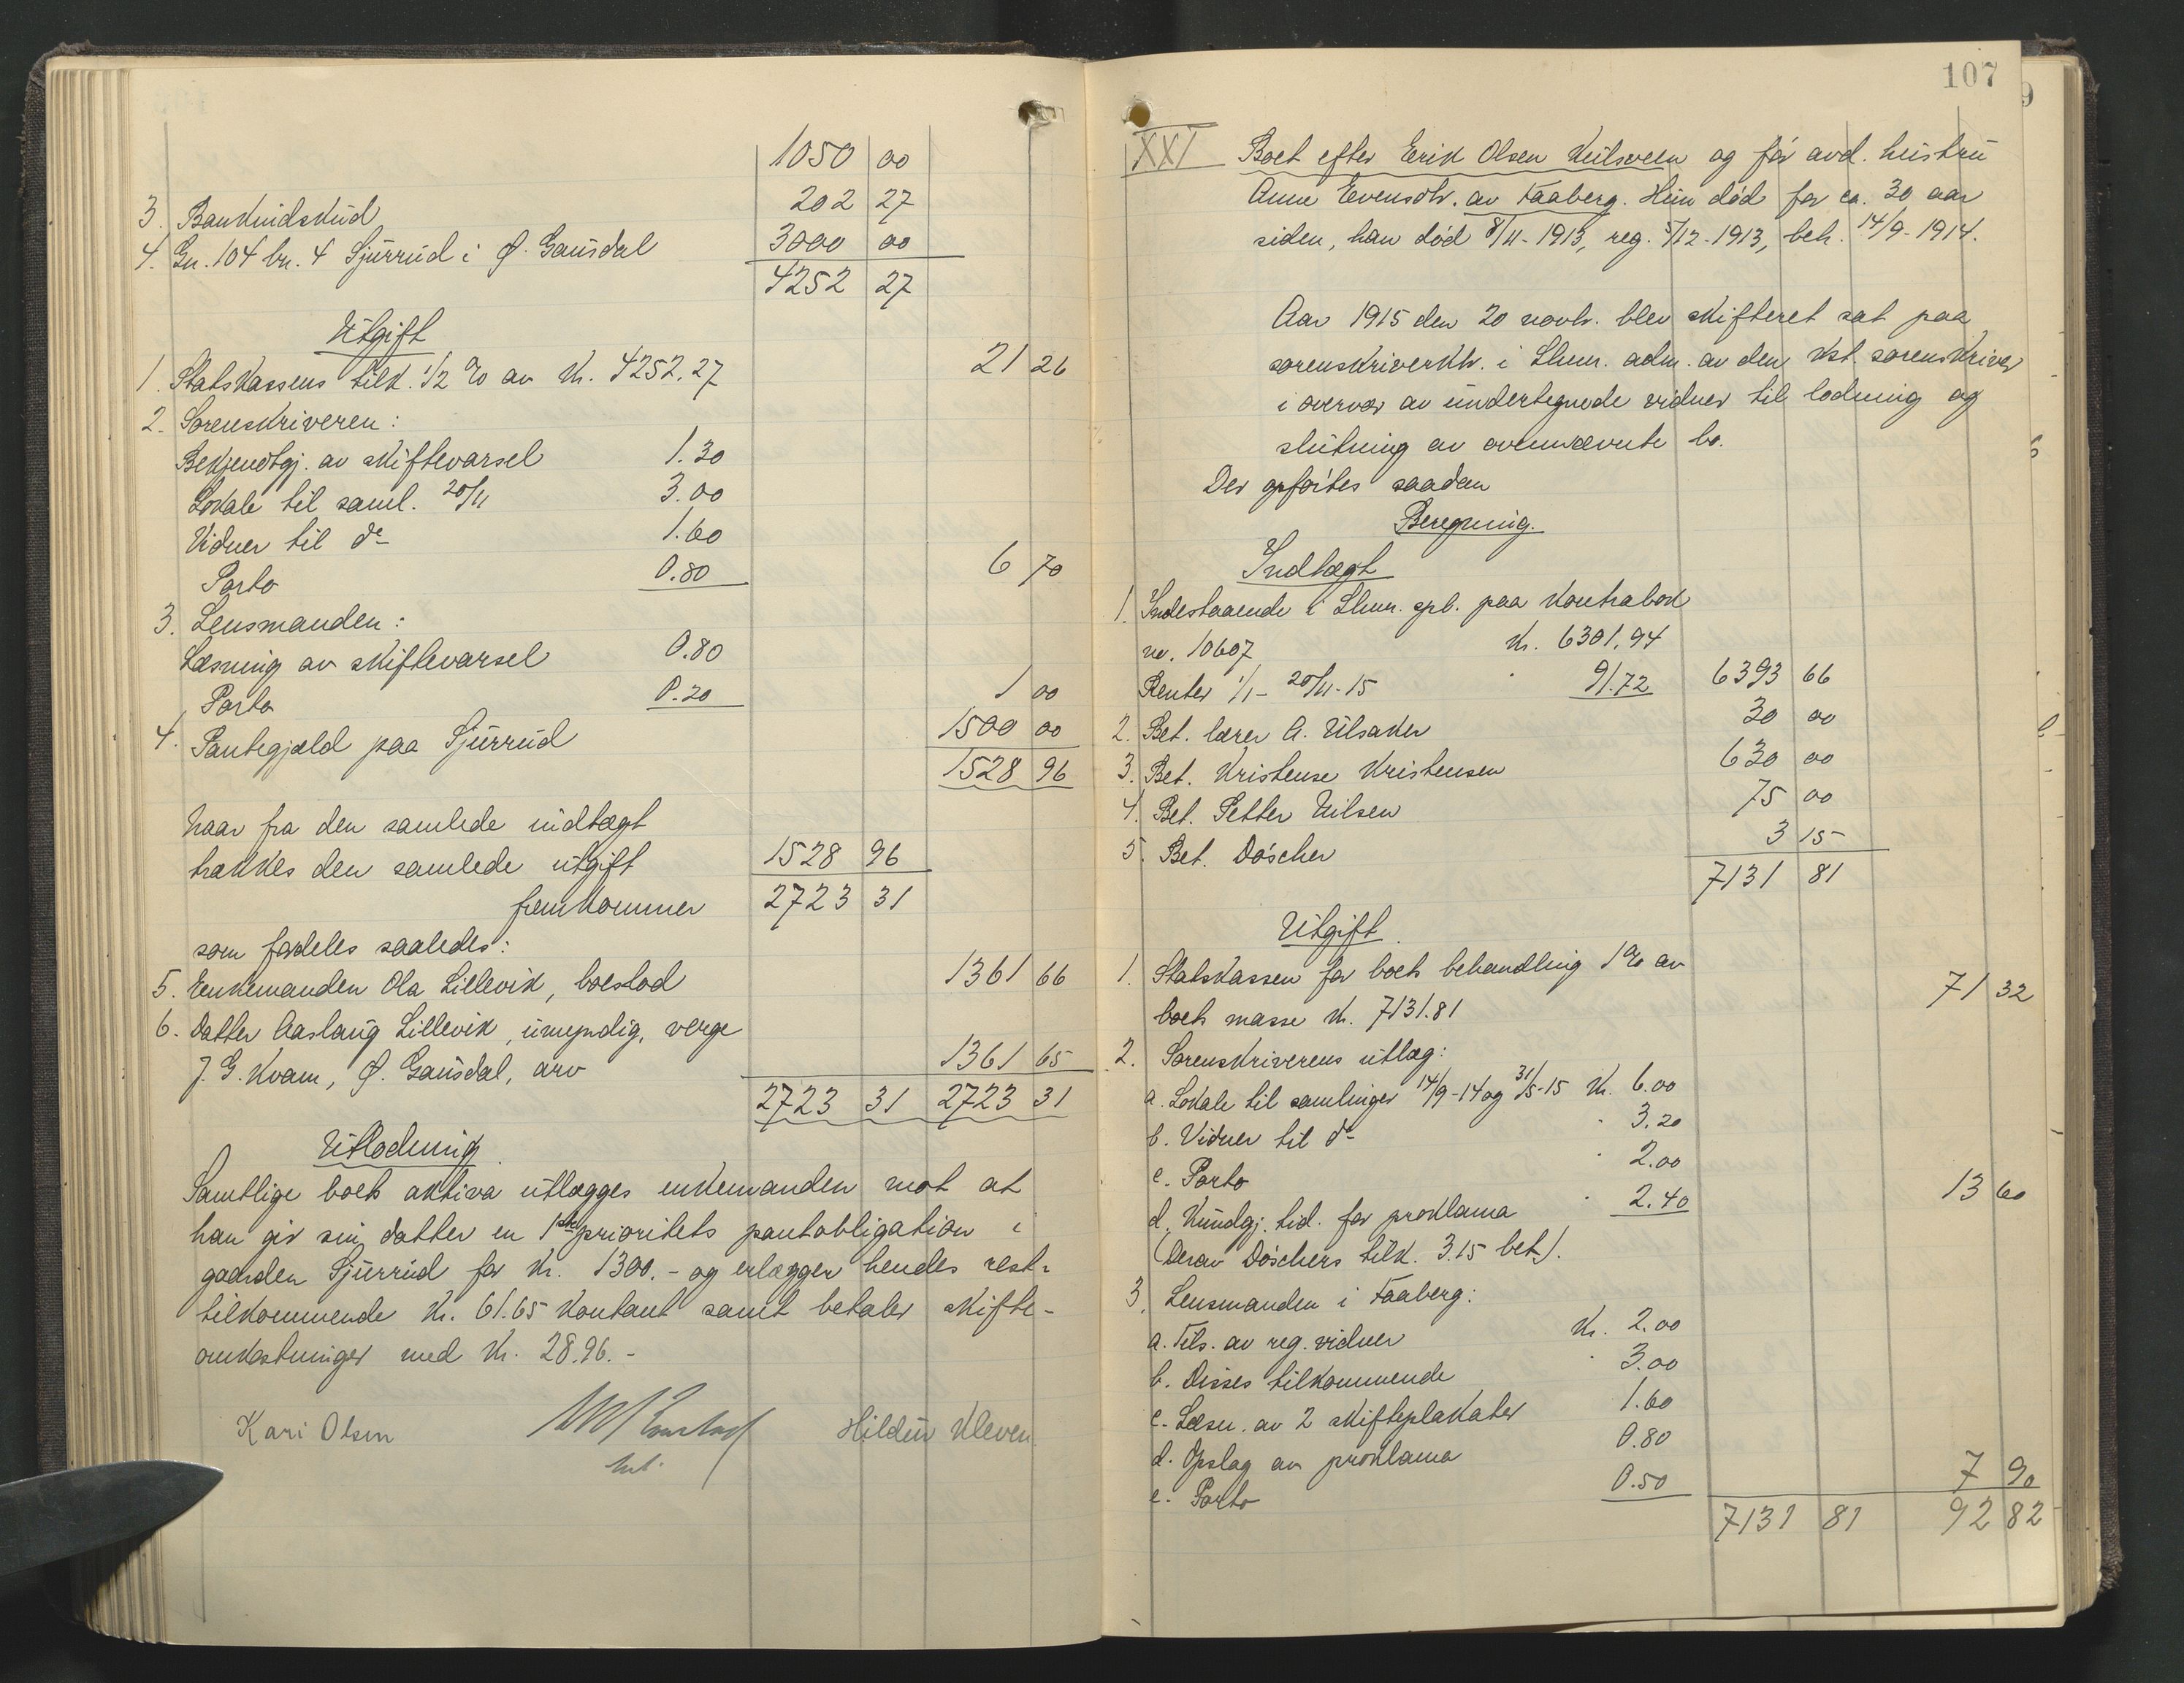 1050 00
3. Bankindskud 202 27
4. Gn. 104 bn. 4 Sjurrud i Ø. Gausdal 3000 00
4252 27
Utgift
1. Statskassens tilk. 1/2 % av kr. 4252.27 21 26
2. Sorenskriveren:
Bekjendtgj. av skiftevarsel 1.30
Lokale til saml. 20/11 3.00
Vidner til do 1.60
Porto 0.80 6 70
3. Lensmanden:
Læsning av skiftevarsel 0.80
Porto 0.20 1 00
4. Pantegjæld paa Sjurrud 1500 00
1528 96
Naar fra den samlede indtægt
trækkes den samlede utgift 1528 96
fremkommer 2723 31
som fordeles saaledes:
5. Enkemanden Ola Lillevik, boeslod 1361 66
6. Datter Aaslaug Lillevik, umyndig, verge
J. G. Kvam, Ø. Gausdal, arv 1361 65
2723 31 2723 31
Utlodning
Samtlige boets aktiva utlægges enkemanden mot at
han gir sin datter en 1ste prioritets pantobligation i
gaarden Sjurrud for kr. 1300.- og erlægger hendes rest-
tilkommende kr. 61.65 kontant samt betaler skifte-
omkostninger med kr. 28.96.-
Kari Olsen Hildur Kleven
107
XXI Boet efter Erik Olsen Kulsveen og før avd. hustru
Anne Evensdtr. av Faaberg. Hun død for ca. 30 aar
siden, han død 8/11-1913, reg. 5/12-1913, beh. 14/9-1914.
Aar 1915 den 20 novbr. blev skifteret sat paa
sorenskriverktr. i Lhmr. adm. av den kst. sorenskriver
i overvær av undertegnede vidner til lodning og
slutning av ovennævnte bo.
Der opførtes saadan
Beregning.
Indtægt
1. Indestaaende i Lhmr. spb. paa kontrabok
no. 10607 kr. 6301.94
Renter 1/1 - 20/11-15 91.72 6393 66
2. Bet. lærer A. Ulsaker 30 00
3. Bet. Kristense Kristensen 630 00
4. Bet. Petter Nilsen 75 00
5. Bet. Døscher 3 15
7131 81
Utgift.
1. Statskassen for boets behandling 1% av
boets masse kr. 7131.81 71 32
2. Sorenskriverens utlæg:
a. Lokale til samlinger 14/9-14 og 31/5-15 kr. 6.00
b. Vidner til do 3.20
c. Porto 2.00
d. Kundgj. tid. for proklama 2.40 13 60
(Derav Døschers tilk. 3.15 bet.).
3. Lensmanden i Faaberg:
a. Tils. av reg. vidner kr. 2.00
b. Disses tilkommende 3.00
c. Læsn. av 2 skifteplakater 1.60
d. Opslag av proklama 0.80
e. Porto 0.50 7 90
7131 81 92 82